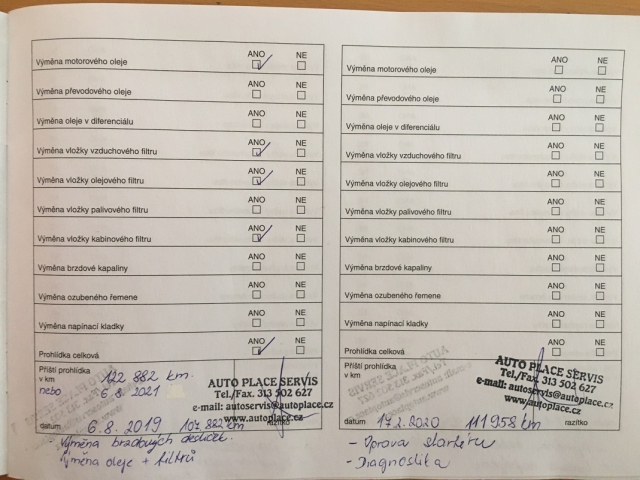 ANO NE
Výměna motorového oleje
ANO NE
Výměna převodového oleje
ANO NE
Výměna oleje v diferenciálu
ANO NE
Výměna vložky vzduchového filtru
ANO NE
Výměna vložky olejového filtru
ANO NE
Výměna vložky palivového filtru
ANO NE
Výměna vložky kabinového filtru
ANO NE
Výměna brzdové kapaliny
ANO NE
Výměna ozubeného řemene
ANO NE
Výměna napínací kladky
ANO NE
Prohlídka celková
Příští prohlídka
v km 122 882 km.
nebo 6.8.2021
AUTO PLACE SERVIS
Tel./Fax. 313 502 627
e-mail: autoservis@autoplace.cz
www.autoplace.cz
datum 6.8.2019 107 882 km razítko
- Výměna brzdových destiček.
Výměna oleje + filtrů
ANO NE
Výměna motorového oleje
ANO NE
Výměna převodového oleje
ANO NE
Výměna oleje v diferenciálu
ANO NE
Výměna vložky vzduchového filtru
ANO NE
Výměna vložky olejového filtru
ANO NE
Výměna vložky palivového filtru
ANO NE
Výměna vložky kabinového filtru
ANO NE
Výměna brzdové kapaliny
ANO NE
Výměna ozubeného řemene
ANO NE
Výměna napínací kladky
ANO NE
Prohlídka celková
Příští prohlídka
v km
AUTO PLACE SERVIS
Tel./Fax. 313 502 627
e-mail: autoservis@autoplace.cz
www.autoplace.cz
datum 17.2.2020 111958 km razítko
- Oprava startéru
- Diagnostika